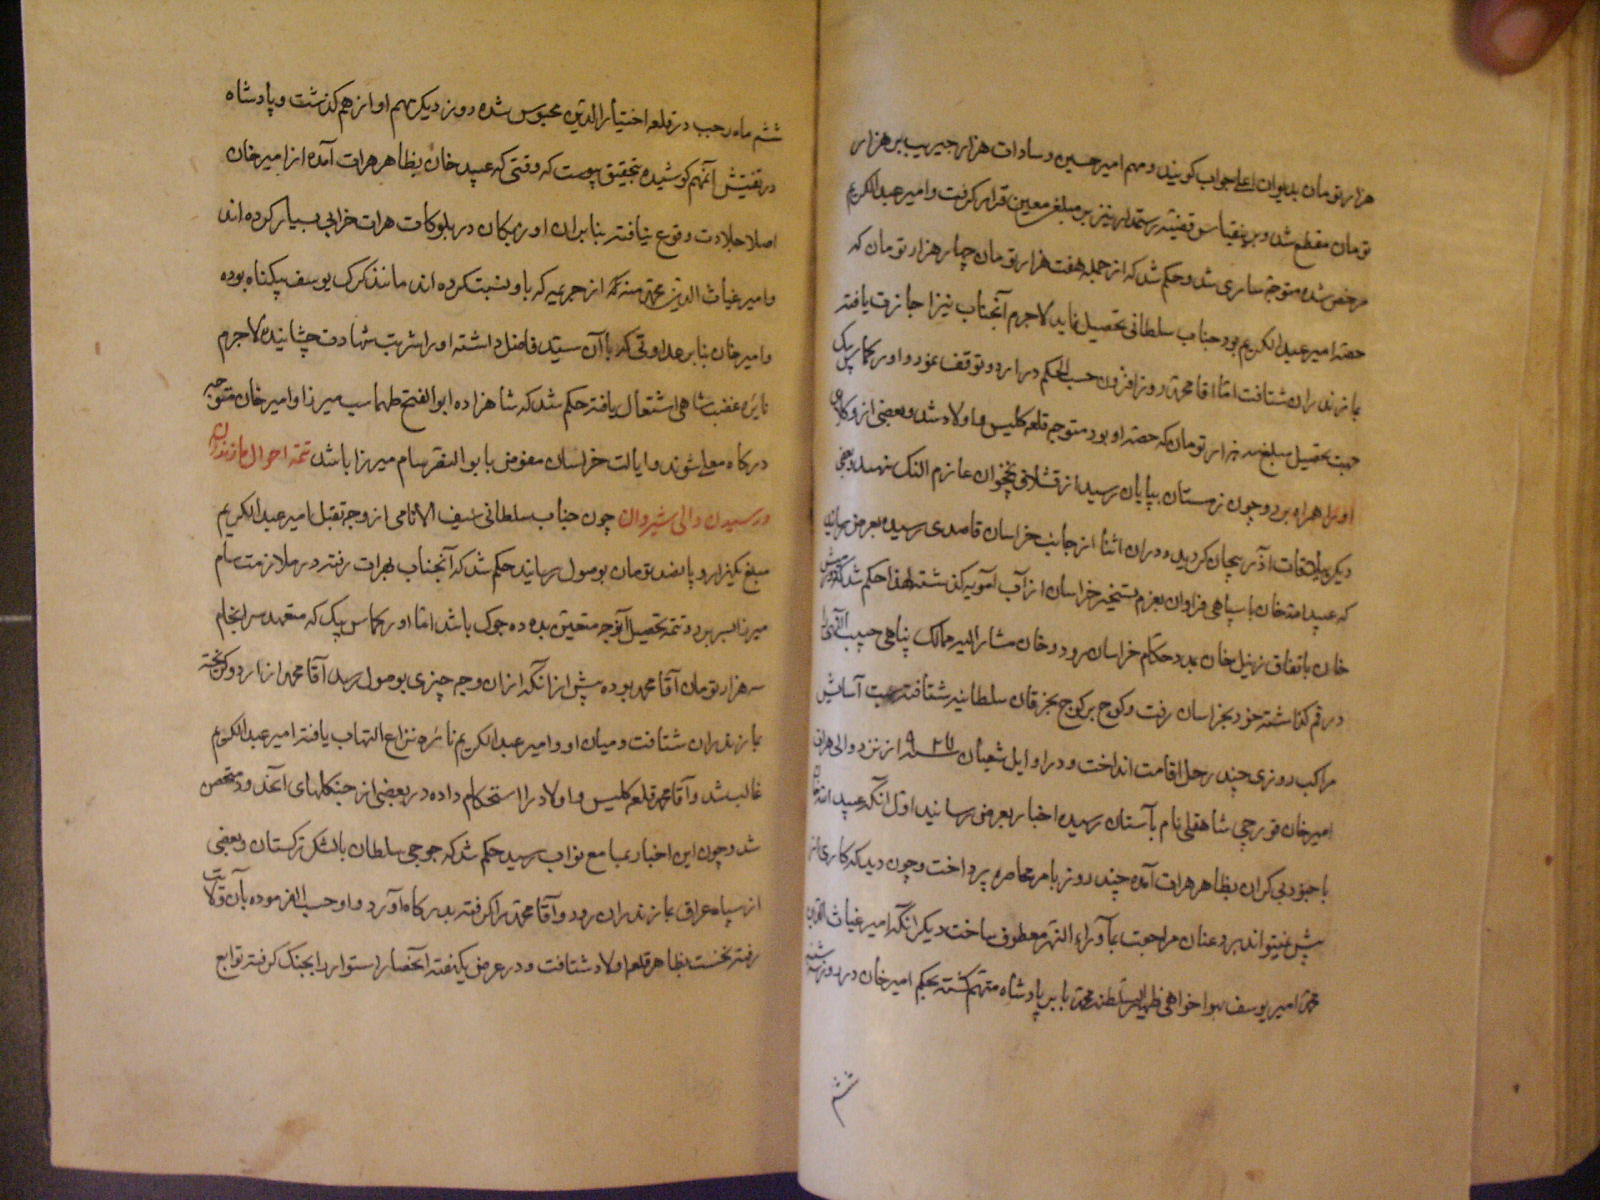 هزار تومان بدیوان اعلی جواب کویند و مهم امیر حسین و سادات هزار جریب بر هزار
تومان مقطع شد و برینقیاس قضیه رستمدار نیز بر مبلغ معین قرار کرفت و امیر عبدالکریم
مرخص شده متوجه ساری شد و حکم شد که از جمله هفت هزار تومان چهار هزار تومان که
حصه امیر عبدالکریم بود جناب سلطانی تحصیل نماید لاجرم آنجناب نیز اجازت یافته
بمازندران شتافت اما آقا محمد روز افزون حسب الحکم در اردو توقف نمود و اورکمار بیک
جهت تحصیل مبلغ سه هزار تومان که حصه او بود متوجه قلعه کلیس و اولاد شد و بعضی از وکلای
او را همراه برد و چون زمستان بپایان رسید از قشلاق نخجوان عازم النک سهند و بعضی
دیکر ییلاقات آذربیجان کردید و در آن اثنا از جانب خراسان قاصدی رسیده بعرض رسانید
که عبید الله خان با سپاهی فراوان بعزم تسخیر خراسان از آب آمویه کذشته لهذا حکم شد که
خان باتفاق زینل خان بمدد حکام خراسان رود و خان مشارالیه ممالک پناهی حبیب اللهی را
در قم کذاشته خود بخراسان رفت و کوچ بر کوچ بخرقان سلطانیه شتافته جهت آسایش
مراکب روزی چند رحل اقامت انداخت و در اوایل شعبان سنه ۹۲۷ از نزد والی هرات
امیر خان قورچی شاهقلی نام بآستان رسیده اخبار بعرض رسانید اول آنکه عبید الله خان
با جنود بی کران بظاهر هرات آمده چند روز بامر محاصره پرداخت و چون دید که کاری از
پیش نمیتواند برد عنان مراجعت بماوراء النهر معطوف ساخت دیکر آنکه امیر غیاث الدین
محمد امیر یوسف بهوا خواهی ظهیر السلطنه محمد بابر پادشاه متهم کشته بحکم امیر خان در روز سه شنبه
ششم
ششم ماه رجب در قلعه اختیار الدین محبوس شده روز دیکر مهم او از هم کذشت و پادشاه
در تفتیش آنمهم کوشیده بتحقیق پیوست که وقتی که عبید خان بظاهر هرات آمده از امیر خان
اصلا جلادت وقوع نیافته بنابر ان اوزبکان در بلوکات هرات خرابی بسیار کرده اند
و امیر غیاث الدین محمد از جریمه که باو نسبت کرده اند مانند کرک یوسف بیکناه بوده
و امیر خان بنابر عداوتی که با آن سید فاضل داشته او را شربت شهادت چشانیده لاجرم
نایره غضب شاهی اشتعال یافته حکم شد که شاهزاده ابوالفتح طهماسب میرزا و امیر خان متوجه
درکاه معلی شوند و ایالت خراسان مفوض بابو النصر سام میرزا باشد تتمه احوال مازندران
و رسیدن والی شیروان چون جناب سلطانی سیف الانامی از وجه تقبل امیر عبدالکریم
مبلغ یکهزار و پانصد تومان بوصول رسانید حکم شد که آنجناب بهرات رفته در ملازمت سام
میرزا بسر برد و تتمه تحصیل آنوجه متعین بده ده جوک باشد اما اورکماس بیک که متعهد سرانجام
سه هزار تومان آقا محمد بوده پیش از آنکه از ان وجه چیزی بوصول رسد آقا محمد از اردو کریخته
بمازندران شتافت و میان او و امیر عبدالکریم نائره نزاع التهاب یافته امیر عبدالکریم
غالب شد و آقا محمد قلعه کلیس و اولاد را استحکام داده در بعضی از جنکلهای آنحدود متحصن
شد و چون این اخبار بمسامع نواب رسید حکم شد که جوجی سلطان با لشکر ترکستان و بعضی
از سپاه عراق بمازندران رود و آقا محمد را کرفته بدرکاه آورد و او حسب الفرموده بآن ولایت
رفته نخست بظاهر قلعه اولاد شتافت و در عرض یکهفته آنحصار استوار را بجنک کرفته توابع